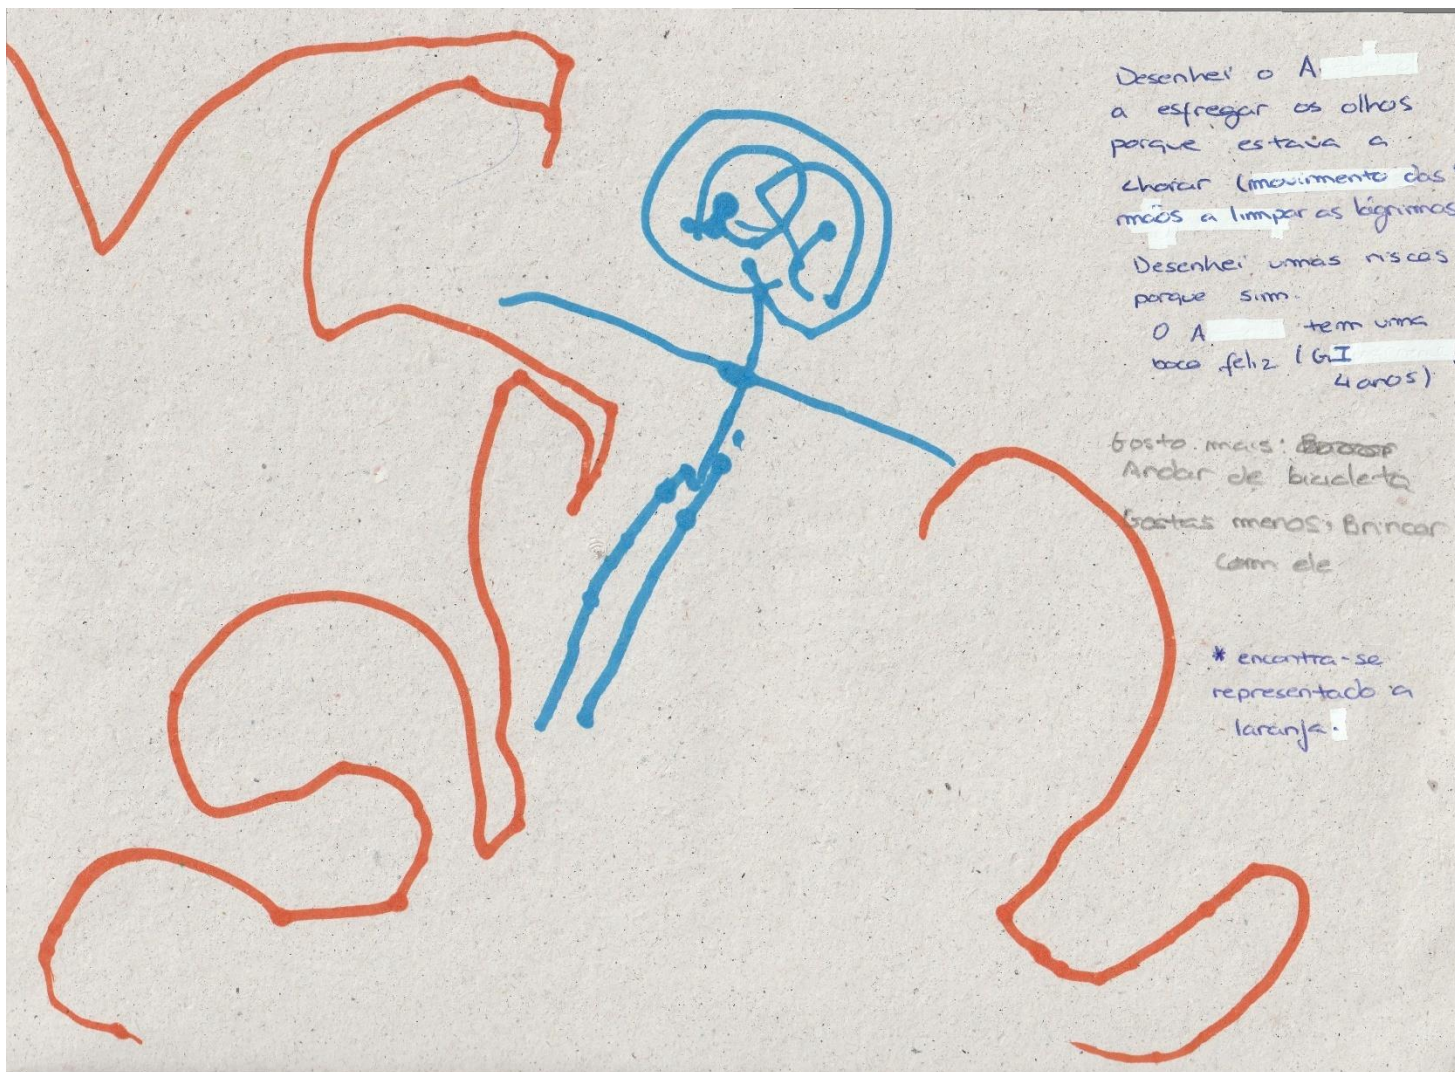 Desenhei o A.
a esfregar os olhos
porque estava a
chorar (movimento das
mãos a limpar as lágrimas
Desenhei umas riscas
porque sim.
O A tem uma
boca feliz (GI
4 anos)
Gosto mais:
Andar de bicicleta
Gostas menos: Brincar
com ele
* encontra-se
representado a
laranja.